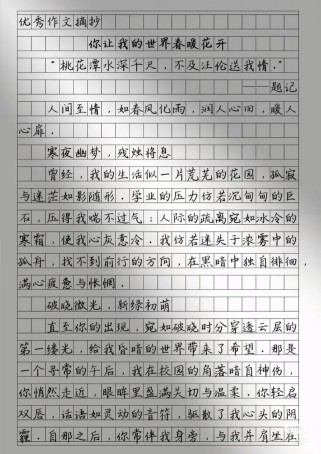 优秀作文摘抄
你让我的世界春暖花开
“桃花潭水深千尺，不及汪伦送我情。”
——题记
人间至情，如春风化雨，润人心田，暖人
心扉。
寒夜幽梦，残烛将息
曾经，我的生活似一片荒芜的花园，孤寂
与迷茫如影随形。学业的压力仿若沉甸甸的巨
石，压得我喘不过气；人际的疏离宛如冰冷的
寒霜，使我心灰意冷。我仿若迷失于浓雾中的
孤舟，找不到前行的方向，在黑暗中独自徘徊，
满心疲惫与怅惘。
破晓微光，新绿初萌
直至你的出现，宛如破晓时分穿透云层的
第一缕光，给我昏暗的世界带来了希望。那是
一个寻常的午后，我在校园的角落暗自神伤，
你悄然走近，眼眸里盈满关切与温柔。你轻启
双唇，话语如灵动的音符，驱散了我心头的阴
霾。自那之后，你常伴我身旁，与我并肩坐在